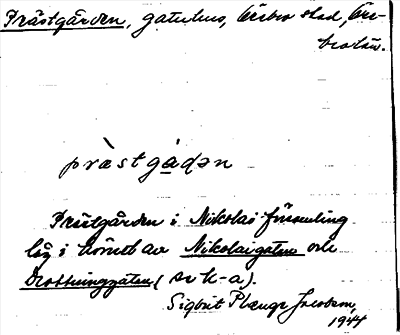 Prästgården, gatuhus, Örebro stad, Öre-
bro län.
pràstgå̀dən
Prästgården i Nikolai församling
låg i hörnet av Nikolaigatan och
Drottninggatan (sv h-a).
Sigbrit Plænge Jacobson,
1944